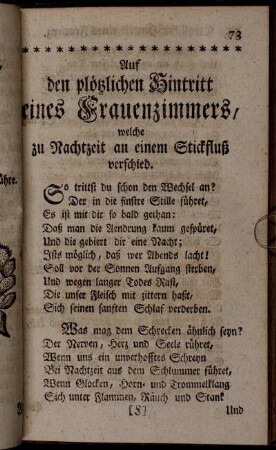 73
Auf
den plötzlichen Hintritt
eines Frauenzimmers,
welche
zu Nachtzeit an einem Stickfluß
verschied.
So trittst du schon den Wechsel an?
Der in die finstre Stille führet,
Es ist mit dir so bald gethan:
Daß man die Aendrung kaum gespüret,
Und die gebiert dir eine Nacht;
Ists möglich, daß wer Abends lacht!
Soll vor der Sonnen Aufgang sterben,
Und wegen langer Todes Rast,
Die unser Fleisch mit zittern haßt,
Sich seinen sanften Schlaf verderben.
Was mag dem Schrecken ähnlich seyn?
Der Nerven, Herz und Seele rühret,
Wenn uns ein unverhofftes Schreyn
Bei Nachtzeit aus dem Schlummer führet,
Wenn Glocken, Horn- und Trommelklang
Sich unter Flammen, Rauch und Stank
[S]
Und